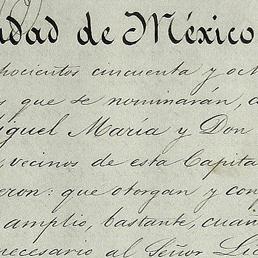 udad de México
hocientos cincuenta y oc
s que se nominarán, c
iguel María y Don
, vecinos de esta Capita
eron: que otorgan y con
amplio, bastante, cuan
necesario al Señor Lic